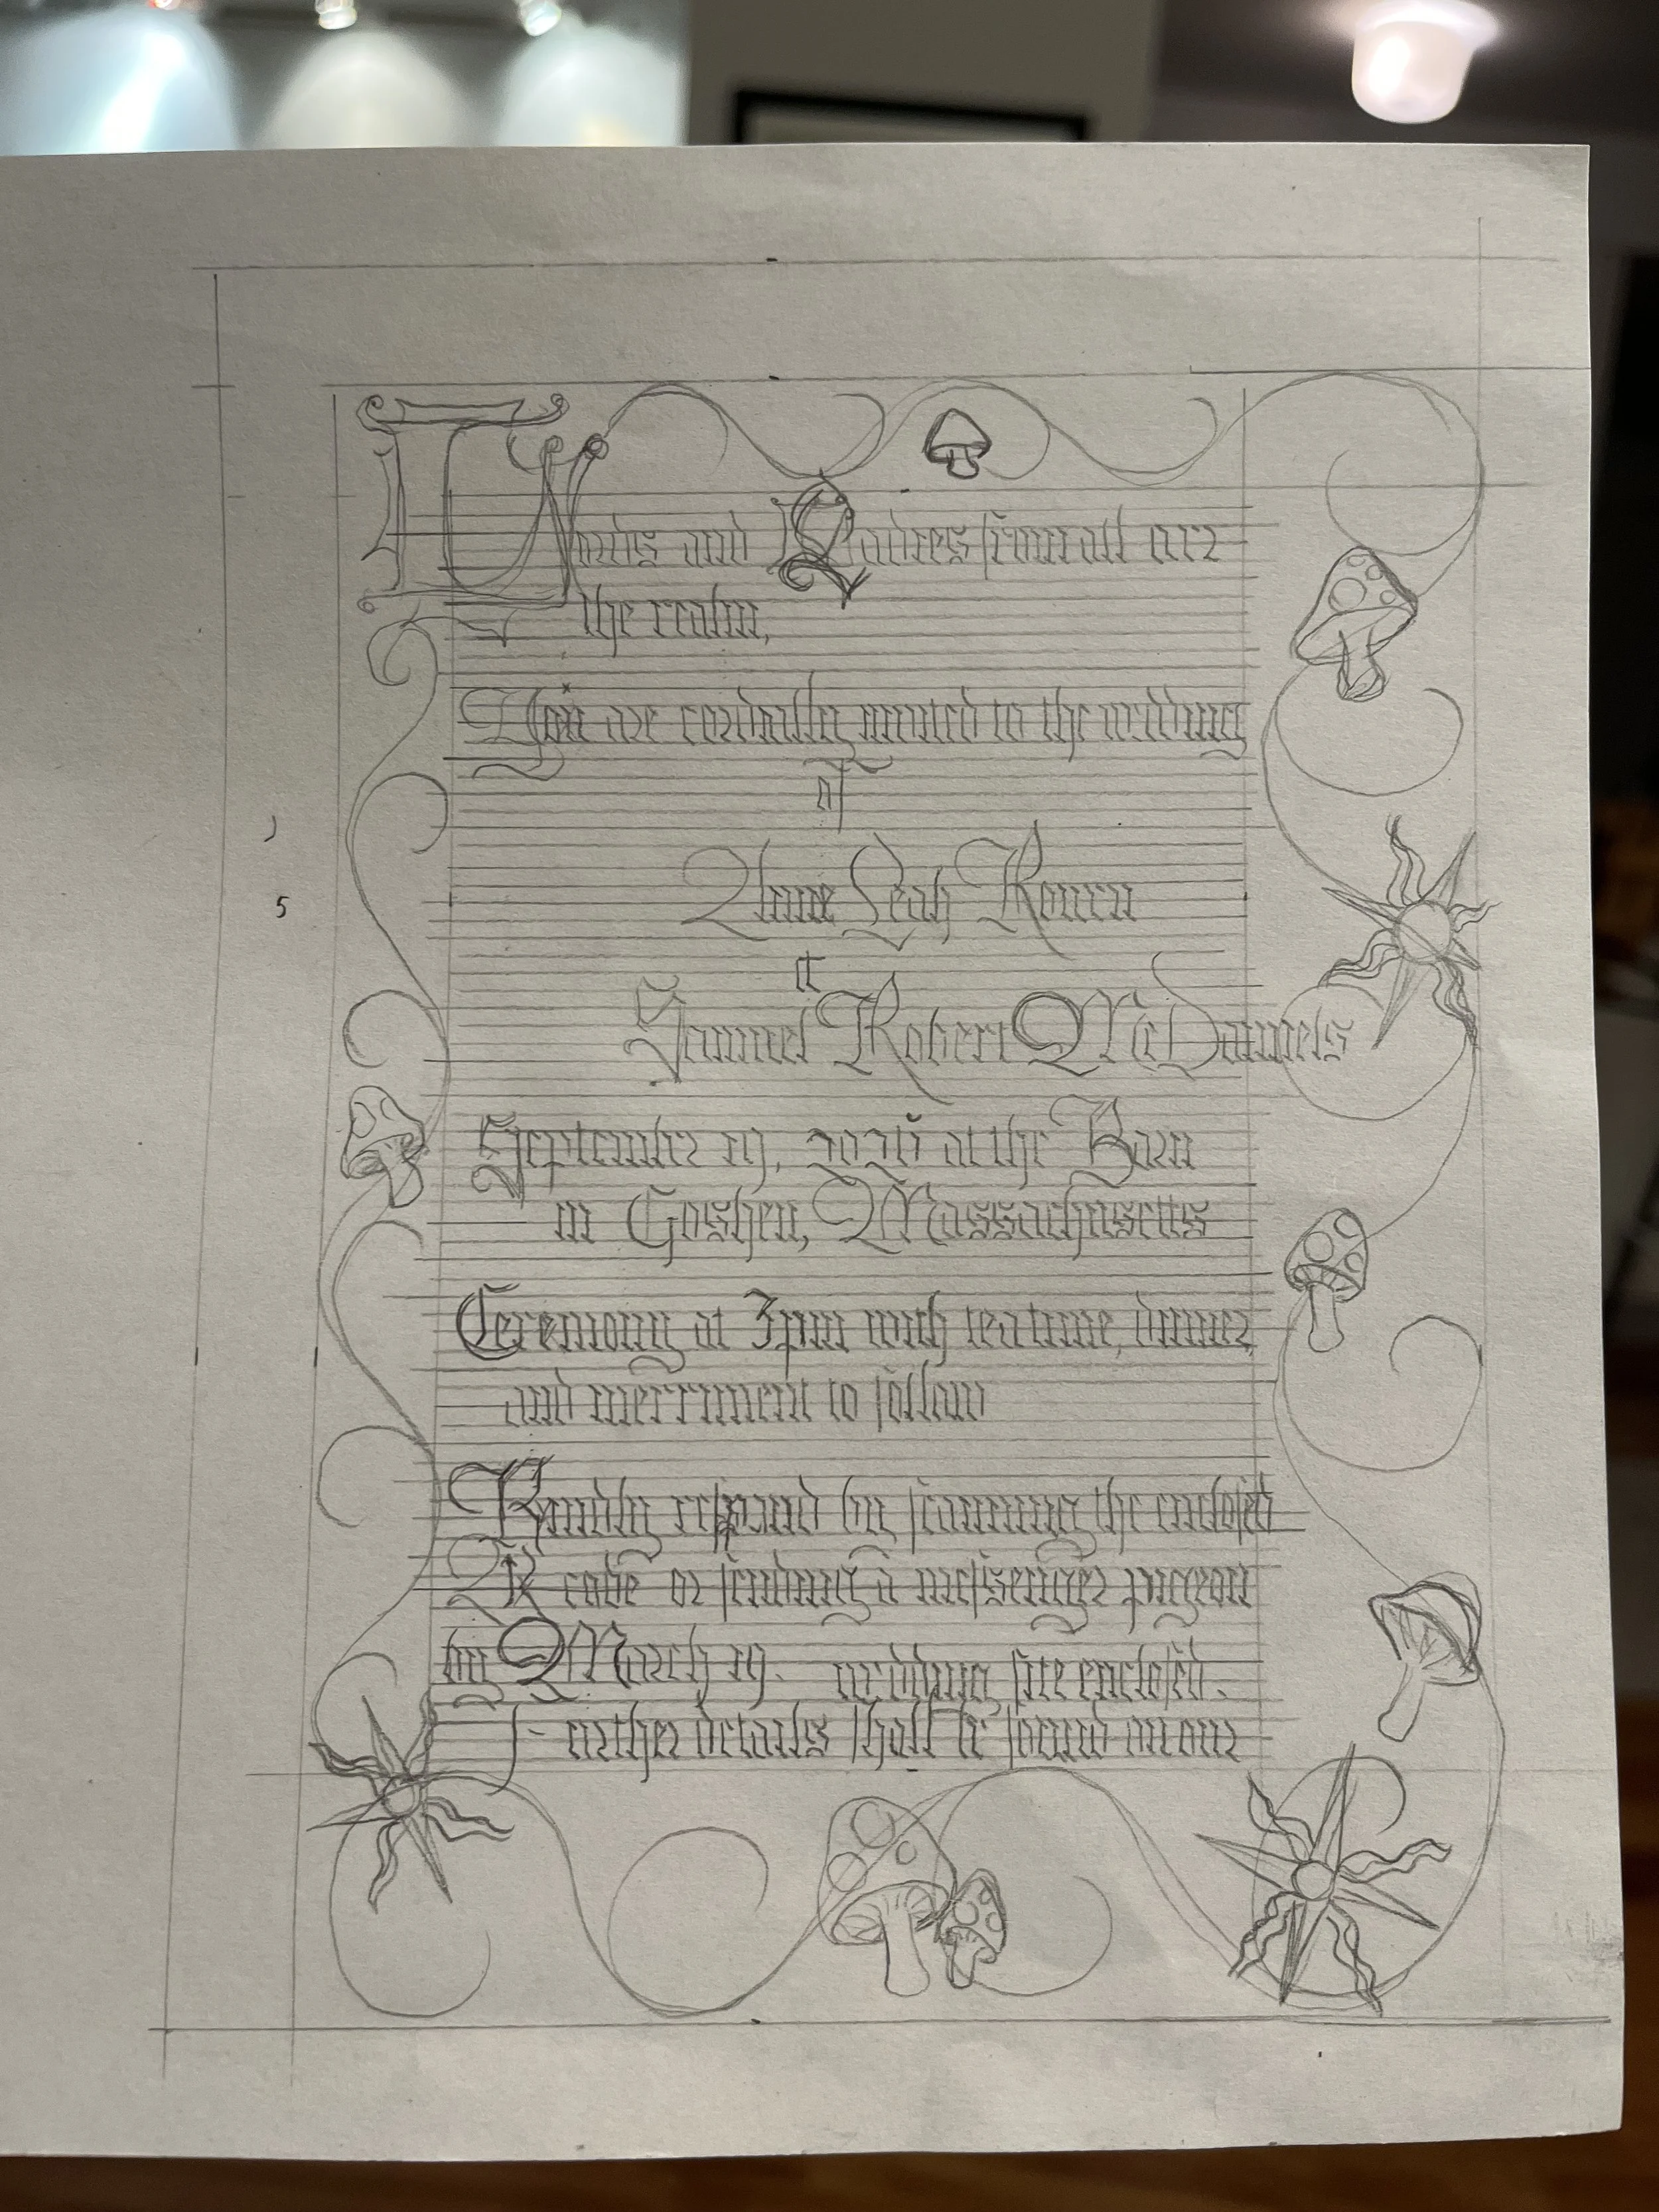 Lords and Ladies from all over
the realm,
You are cordially invited to the wedding
of
Anne Leah Rowen
et
Samuel Robert McDaniels
September 19, 2026 at the Barn
in Goshen, Massachusetts
Ceremony at 3pm with tea time, dinner,
and merriment to follow
Kindly respond by scanning the enclosed
QR code or sending a messenger pigeon
by March 19.
wedding site enclosed.
Further details shall be found on our
5